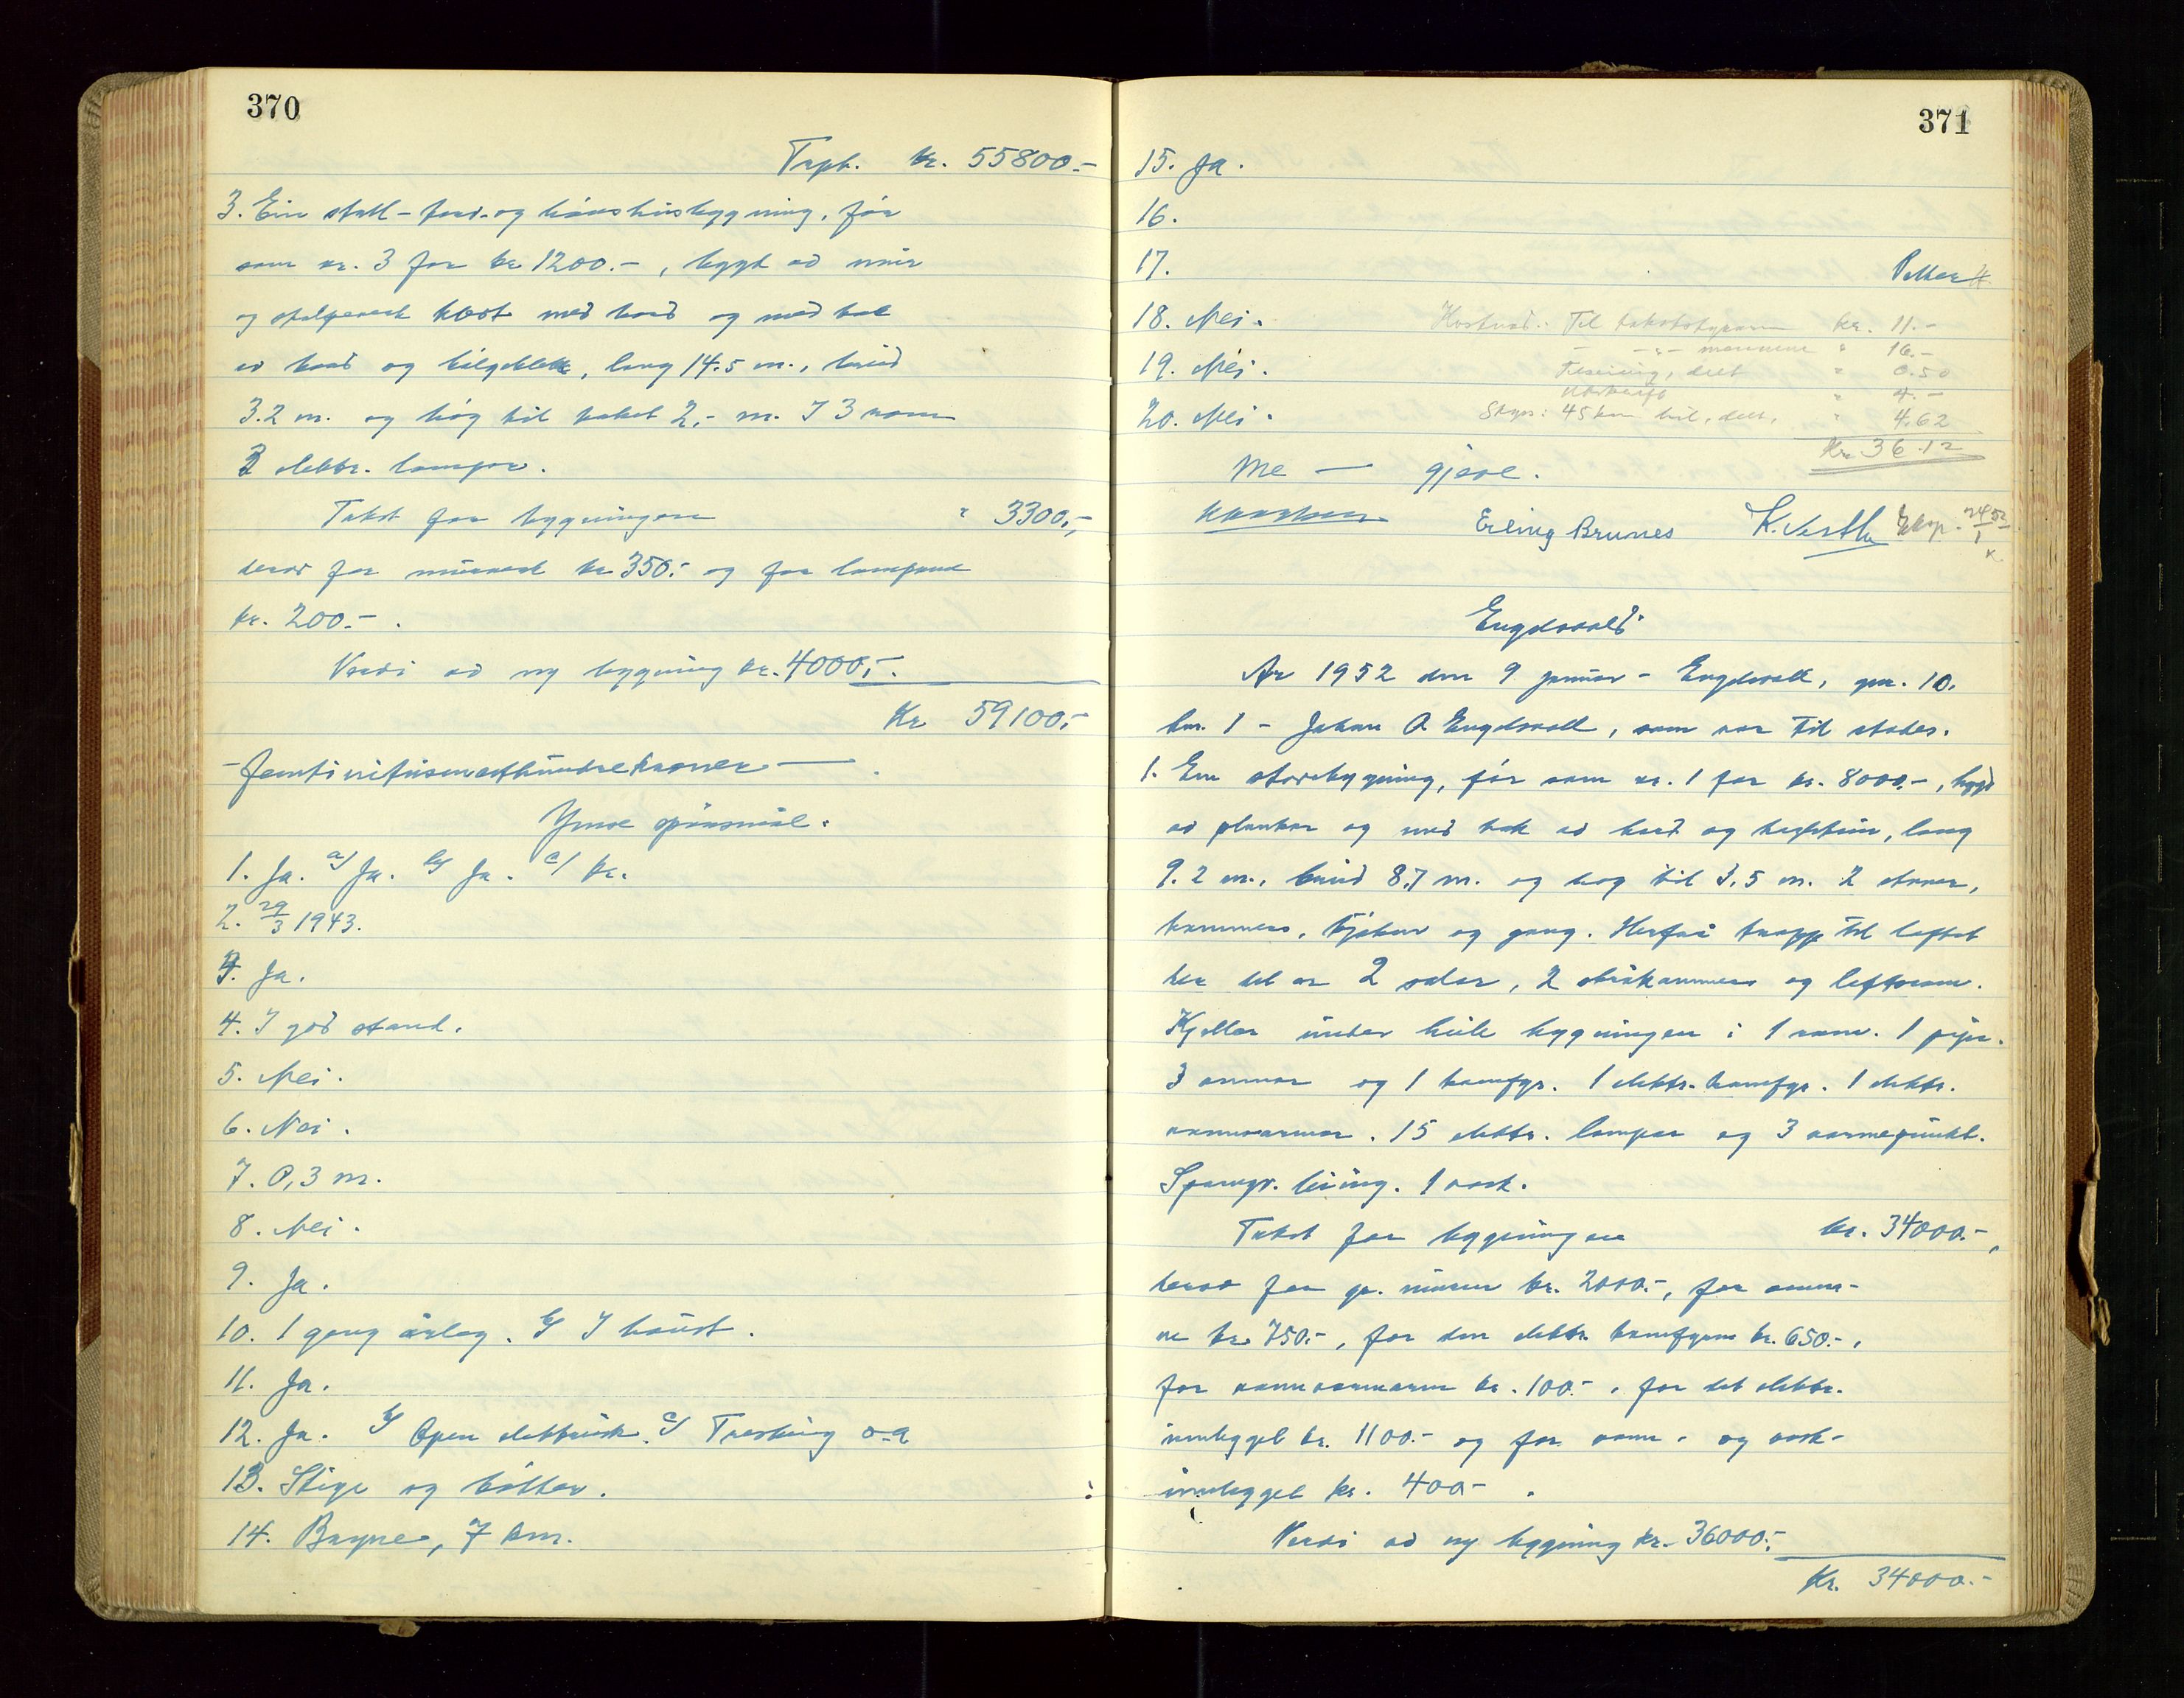 370
Trpt. kr. 55800.-
3. Ein stall- ford- og hønshusbygning, før
som nr. 3 for kr 1200.-, bygt av mur
og stolpeverk kledt med bord og med tak
av bord og bølgeblekk, lang 14.5 m., breid
3.2 m. og høg til taket 2,- m. I 3 rom
2 elektr. lampor.
Takst for bygningen " 3300,-
derav for murverk kr 350.- og for lampune
kr. 200.- .
Verdi av ny bygning kr. 4000,-.
Kr 59100,-
- femtinitusenetthundrekroner - .
Ymse spørsmål.
1. Ja. a/ Ja. b/ Ja. c/ kr.
2. 29/3 1943.
3. Ja.
4. I god stand.
5. Nei.
6. Nei.
7. 0,3 m.
8. Nei.
9. Ja.
10. 1 gong årleg. b/ I haust.
11. Ja.
12. Ja. b/ Open elektrisk. c/ Tresking o.a
13. Stige og bøtter.
14. Bryne, 7 km.
371
15. Ja.
16.
17. Petter H.
18. Nei.
19. Nei.
20. Nei.
Kostnad: Til takststyraren kr. 11.-
- -"- mennene " 16.-
Tilseiing, delt " 0.50
Utskrift " 4.-
Skyss: 45 km bil, delt, " 4.62
Kr. 36.12
Me — gjeve.
Erling Brunes K. Vestly Eksp. 24/1 52
K
Engelsvoll
År 1952 den 9 januar - Engelsvoll, gnr. 10.
bnr. 1 - Johan A Engelsvoll, som var til stades.
1. Ein stovebygning, før som nr. 1 for kr. 8000.-, bygd
av plankar og med tak av bord og takstein, lang
9.2 m., breid 8.7 m. og høg til 3.5 m. 2 stover,
kammers, kjøken og gang. Herfrå trapp til loftet
der det er 2 salar, 2 skråkammers og loftsrom.
Kjellar under heile bygningen i 1 rom. 1 pipe.
3 omnar og 1 komfyr. 1 elektr. komfyr. 1 elektr.
vannvarmar. 15 elektr. lampor og 3 varmepunkt.
1 vask.
Takst for bygningen kr. 34000.-,
derav for gr. muren kr. 2000.-, for omna-
ne kr 750.-, for den elektr. komfyren kr. 650.-,
for vannvarmaren kr. 100.-, for det elektr.
innlegget kr. 1100.- og for vann- og vask-
innlegget kr. 400.- .
Verdi av ny bygning kr. 36000.-
Kr. 34000.-